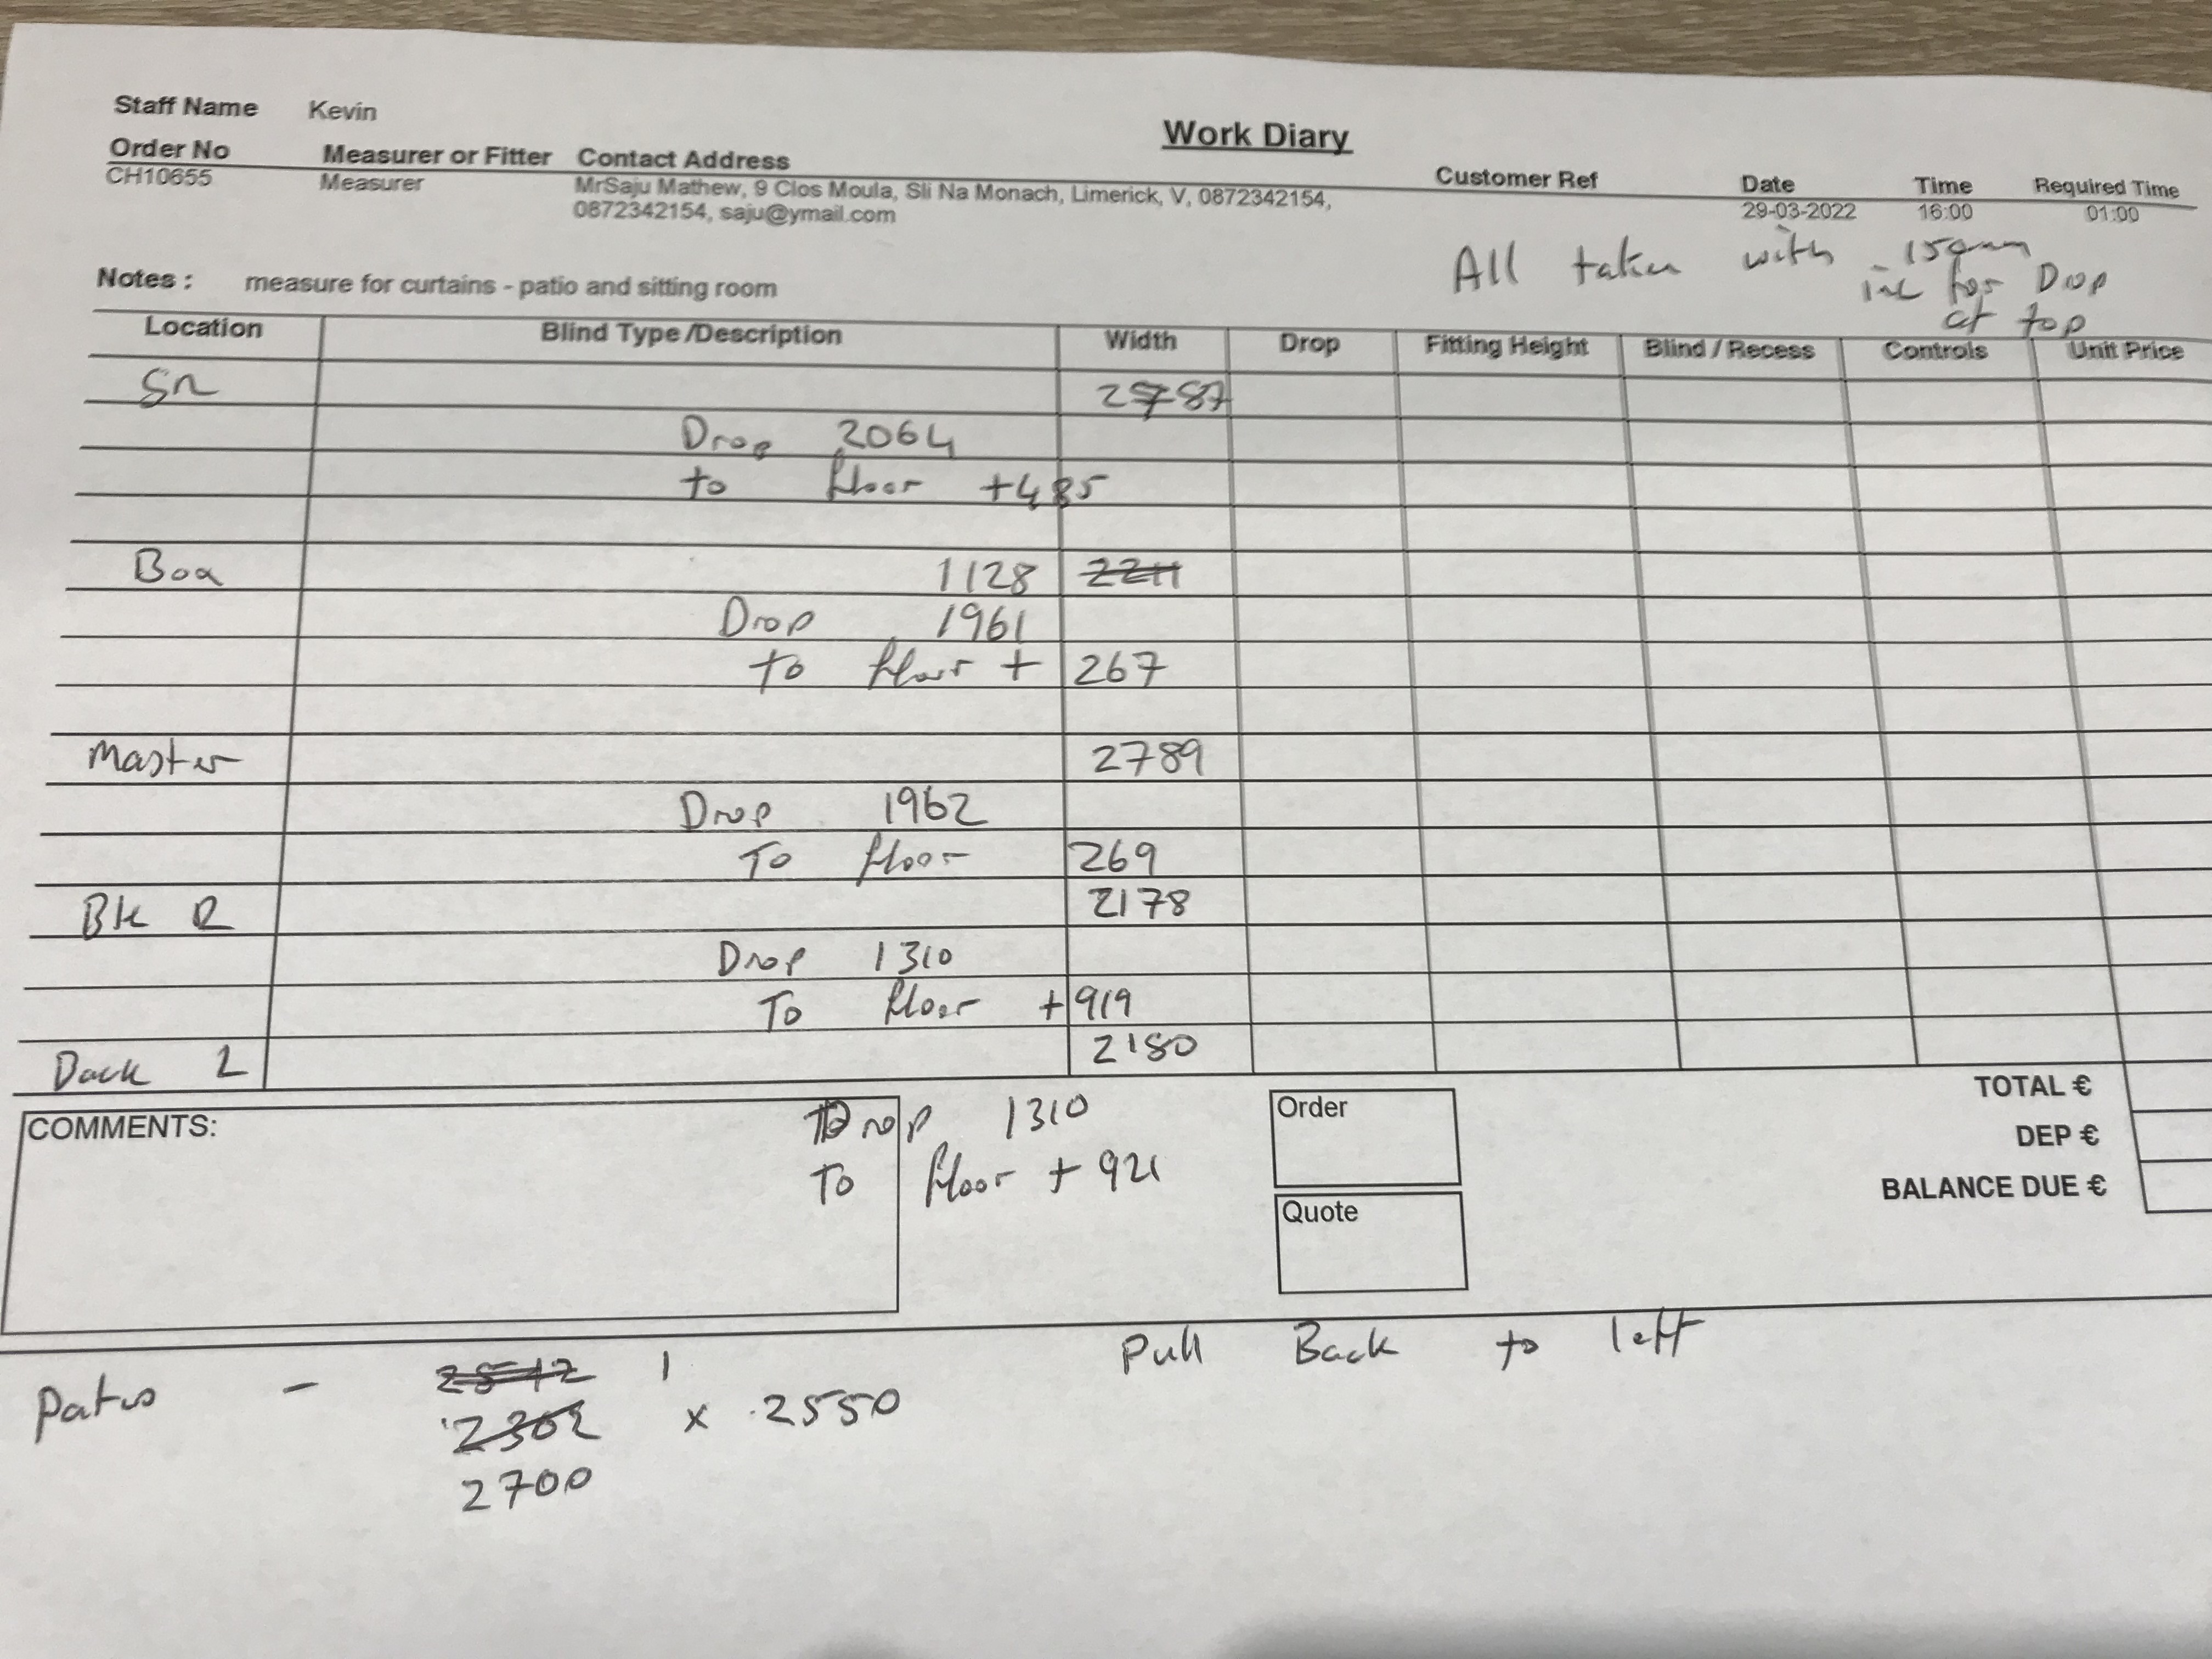 Staff Name Kevin
Work Diary
Order No Measurer or Fitter Contact Address Customer Ref Date Time Required Time
CH10655 Measurer MrSaju Mathew, 9 Clos Moula, Sli Na Monach, Limerick, V, 0872342154, 29-03-2022 16:00 01:00
0872342154, saju@ymail.com
All taken with 150mm
inc for Drop
at top
Notes : measure for curtains - patio and sitting room
Location Blind Type /Description Width Drop Fitting Height Blind / Recess Controls Unit Price
SR 2787
Drop 2064
to floor +485
Box 1128 2211
Drop 1961
to floor + 267
Master 2789
Drop 1962
To floor 269
Bk R 2178
Drop 1310
To floor + 919
Back L 2180
TOTAL €
COMMENTS: Drop 1310 Order
DEP €
To floor + 921
BALANCE DUE €
Quote
Pull Back to left
Patio -
2302 x 2550
2700